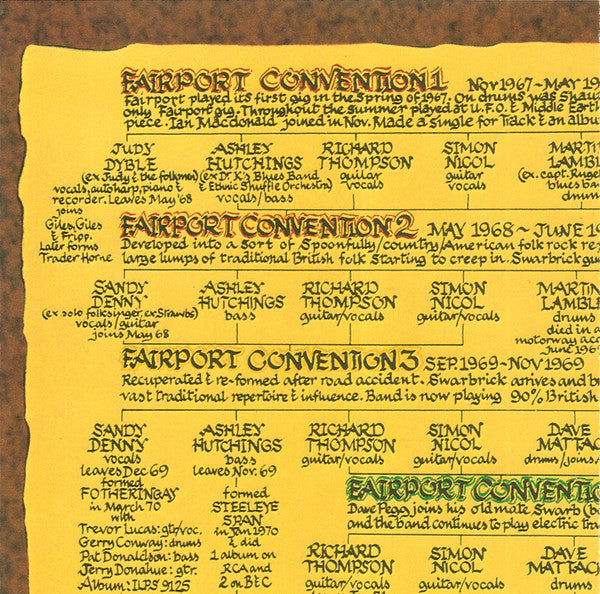 FAIRPORT CONVENTION 1 Nov 1967~MAY 19
Fairport played its first gig in the Spring of 1967. On drums was Shau
only Fairport gig. Throughout the summer played at U.F.O. & Middle Earth
piece. Ian Macdonald joined in Nov. Made a Single for Track & an albu
JUDY ASHLEY RICHARD SIMON MARTI
DYBLE HUTCHINGS THOMPSON NICOL LAMBL
(ex Judy & the folkmen) (ex Dr. K's Blues Band guitar guitar (ex. capt. Ruge
vocals, autoharp, piano & & Ethnic Shuffle Orchestra) vocals vocals blues ba
recorder. Leaves May '68 vocals/bass drum
joins
Giles, Giles
& Fripp.
Later forms
Trader Horne
FAIRPORT CONVENTION 2 MAY 1968~JUNE 19
Developed into a sort of Spoonfully/country/American folk rock re
large lumps of traditional British folk starting to creep in. Swarbrick gu
SANDY ASHLEY RICHARD SIMON MARTIN
DENNY HUTCHINGS THOMPSON NICOL LAMBLE
(ex solo folksinger, ex Strawbs) bass guitar/vocals guitar/vocals drums
vocals/guitar died in a
joins May 68 motorway acc
June 1969
FAIRPORT CONVENTION 3 SEP. 1969~NOV 1969
Recuperated & re-formed after road accident. Swarbrick arrives and br
vast traditional repertoire & influence. Band is now playing 90% British
SANDY ASHLEY RICHARD SIMON DAVE
DENNY HUTCHINGS THOMPSON NICOL MATTAC
vocals bass guitar/vocals guitar/vocals drums/joins
leaves Dec 69 leaves Nov. 69
formed formed
FOTHERINGAY STEELEYE
in March 70 SPAN
with in Jan 1970
Trevor Lucas: gtr/voc. & did
Gerry Conway: drums 1 album on
Pat Donaldson: bass RCA and
Jerry Donahue: gtr. 2 on B&C
Album: ILPS 9125
FAIRPORT CONVENTIO
Dave Pegg joins his old mate Swarb (b
and the band continues to play electric tra
RICHARD SIMON DAVE
THOMPSON NICOL MATTAC
guitar/vocals guitar/vocals drums